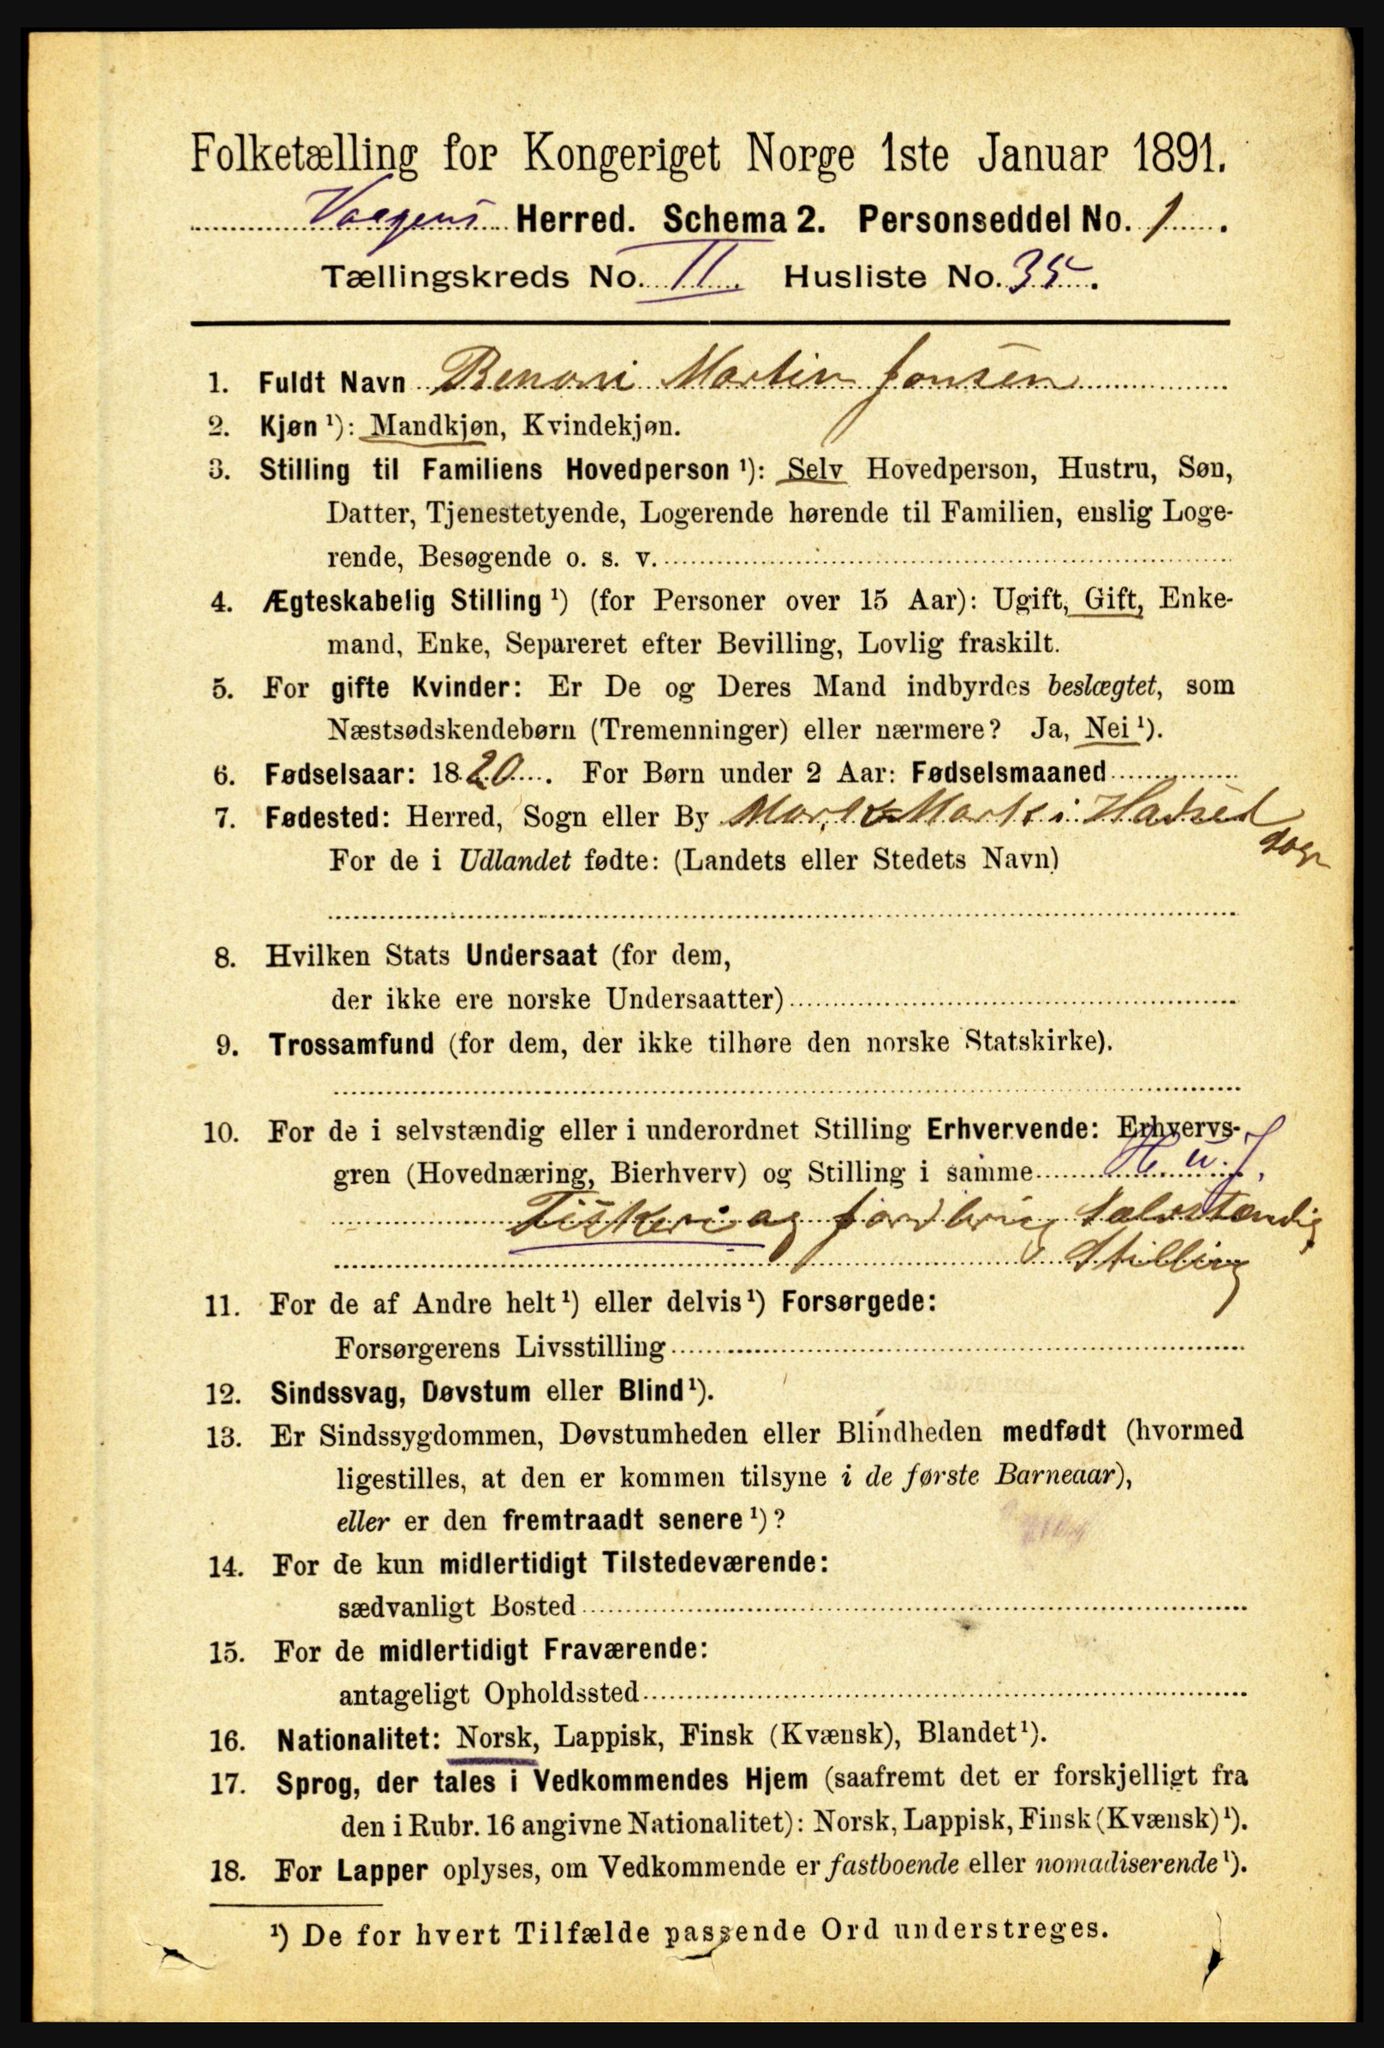 Folketælling for Kongeriget Norge 1ste Januar 1891.
Vaagens Herred. Schema 2. Personseddel No. 1.
Tællingskreds No. II. Husliste No. 35.
1. Fuldt Navn Benoni Martin Jonsen
2. Kjøn ¹): Mandkjøn, Kvindekjøn.
3. Stilling til Familiens Hovedperson ¹): Selv Hovedperson, Hustru, Søn,
Datter, Tjenestetyende, Logerende hørende til Familien, enslig Loge-
rende, Besøgende o. s. v.
4. Ægteskabelig Stilling ¹) (for Personer over 15 Aar): Ugift, Gift, Enke-
mand, Enke, Separeret efter Bevilling, Lovlig fraskilt.
5. For gifte Kvinder: Er De og Deres Mand indbyrdes beslægtet, som
Næstsødskendebørn (Tremenninger) eller nærmere? Ja, Nei ¹).
6. Fødselsaar: 1820. For Børn under 2 Aar: Fødselsmaaned
7. Fødested: Herred, Sogn eller By i Hadsel
Sogn
For de i Udlandet fødte: (Landets eller Stedets Navn)
8. Hvilken Stats Undersaat (for dem,
der ikke ere norske Undersaatter)
9. Trossamfund (for dem, der ikke tilhøre den norske Statskirke).
10. For de i selvstændig eller i underordnet Stilling Erhvervende: Erhvervs-
gren (Hovednæring, Bierhverv) og Stilling i samme
Fiskeri og jordbrug Selvstændig
Stilling
11. For de af Andre helt ¹) eller delvis ¹) Forsørgede:
Forsørgerens Livsstilling
12. Sindssvag, Døvstum eller Blind ¹).
13. Er Sindssygdommen, Døvstumheden eller Blindheden medfødt (hvormed
ligestilles, at den er kommen tilsyne i de første Barneaar),
eller er den fremtraadt senere ¹)?
14. For de kun midlertidigt Tilstedeværende:
sædvanligt Bosted
15. For de midlertidigt Fraværende:
antageligt Opholdssted
16. Nationalitet: Norsk, Lappisk, Finsk (Kvænsk), Blandet ¹).
17. Sprog, der tales i Vedkommendes Hjem (saafremt det er forskjelligt fra
den i Rubr. 16 angivne Nationalitet): Norsk, Lappisk, Finsk (Kvænsk) ¹).
18. For Lapper oplyses, om Vedkommende er fastboende eller nomadiserende ¹).
¹) De for hvert Tilfælde passende Ord understreges.